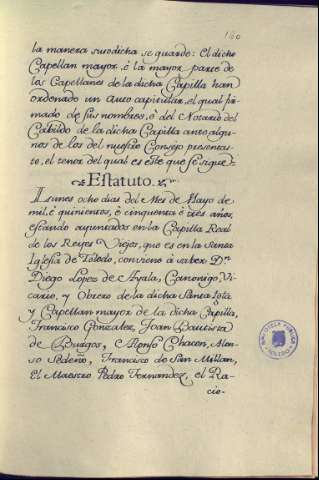 160
la manera susodicha se guarde: El dicho
Capellan mayor, è la mayor parte de
los Capellanes de la dicha Capilla han
ordenado un auto capitular, el qual fir-
mado de sus nombres, è del Notario del
Cabildo de la dicha Capilla ante algu-
nos de los del nuestro Consejo presenta-
ro, el tenor del qual es este que se sigue:
Estatuto.
Lunes ocho dias del Mes de Mayo de
mil, è quinientos, è cinquenta è tres años,
estando ayuntados en la Capilla Real
de los Reyes Viejos, que es en la Santa
Iglesia de Toledo, conviene à saber Dn
Diego Lopez de Ayala, Canonigo, Vi-
cario, y Obrero de la dicha Santa Iglª
y Capellan mayor de la dicha Capilla,
Francisco Gonzalez, Joan Bautista
de Burgos, è Alonso Chacon, Alon-
so Sedeño, Francisco de San Millan,
El Maestro Pedro Fernandez, el Ra-
cio-
BIBLIOTECA PUBLICA
TOLEDO